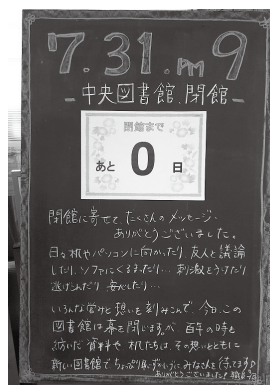 7.31.m9
中央図書館、閉館
閉館まで
あと 0 日
閉館に寄せて、たくさんのメッセージ
ありがとうございました。
日々机やパソコンに向かったり、友人と議論
したり、ソファにくるまったり… 刺激をうけたり
逃げこんだり 安心したり…
いろんな営みと想いを刻みこんで、今日、この
図書館は幕を閉じますが 百年の時を
紡いだ資料や 私たちは、その想いとともに
新しい図書館で みなさんを 待ってます
ありがとうございました！